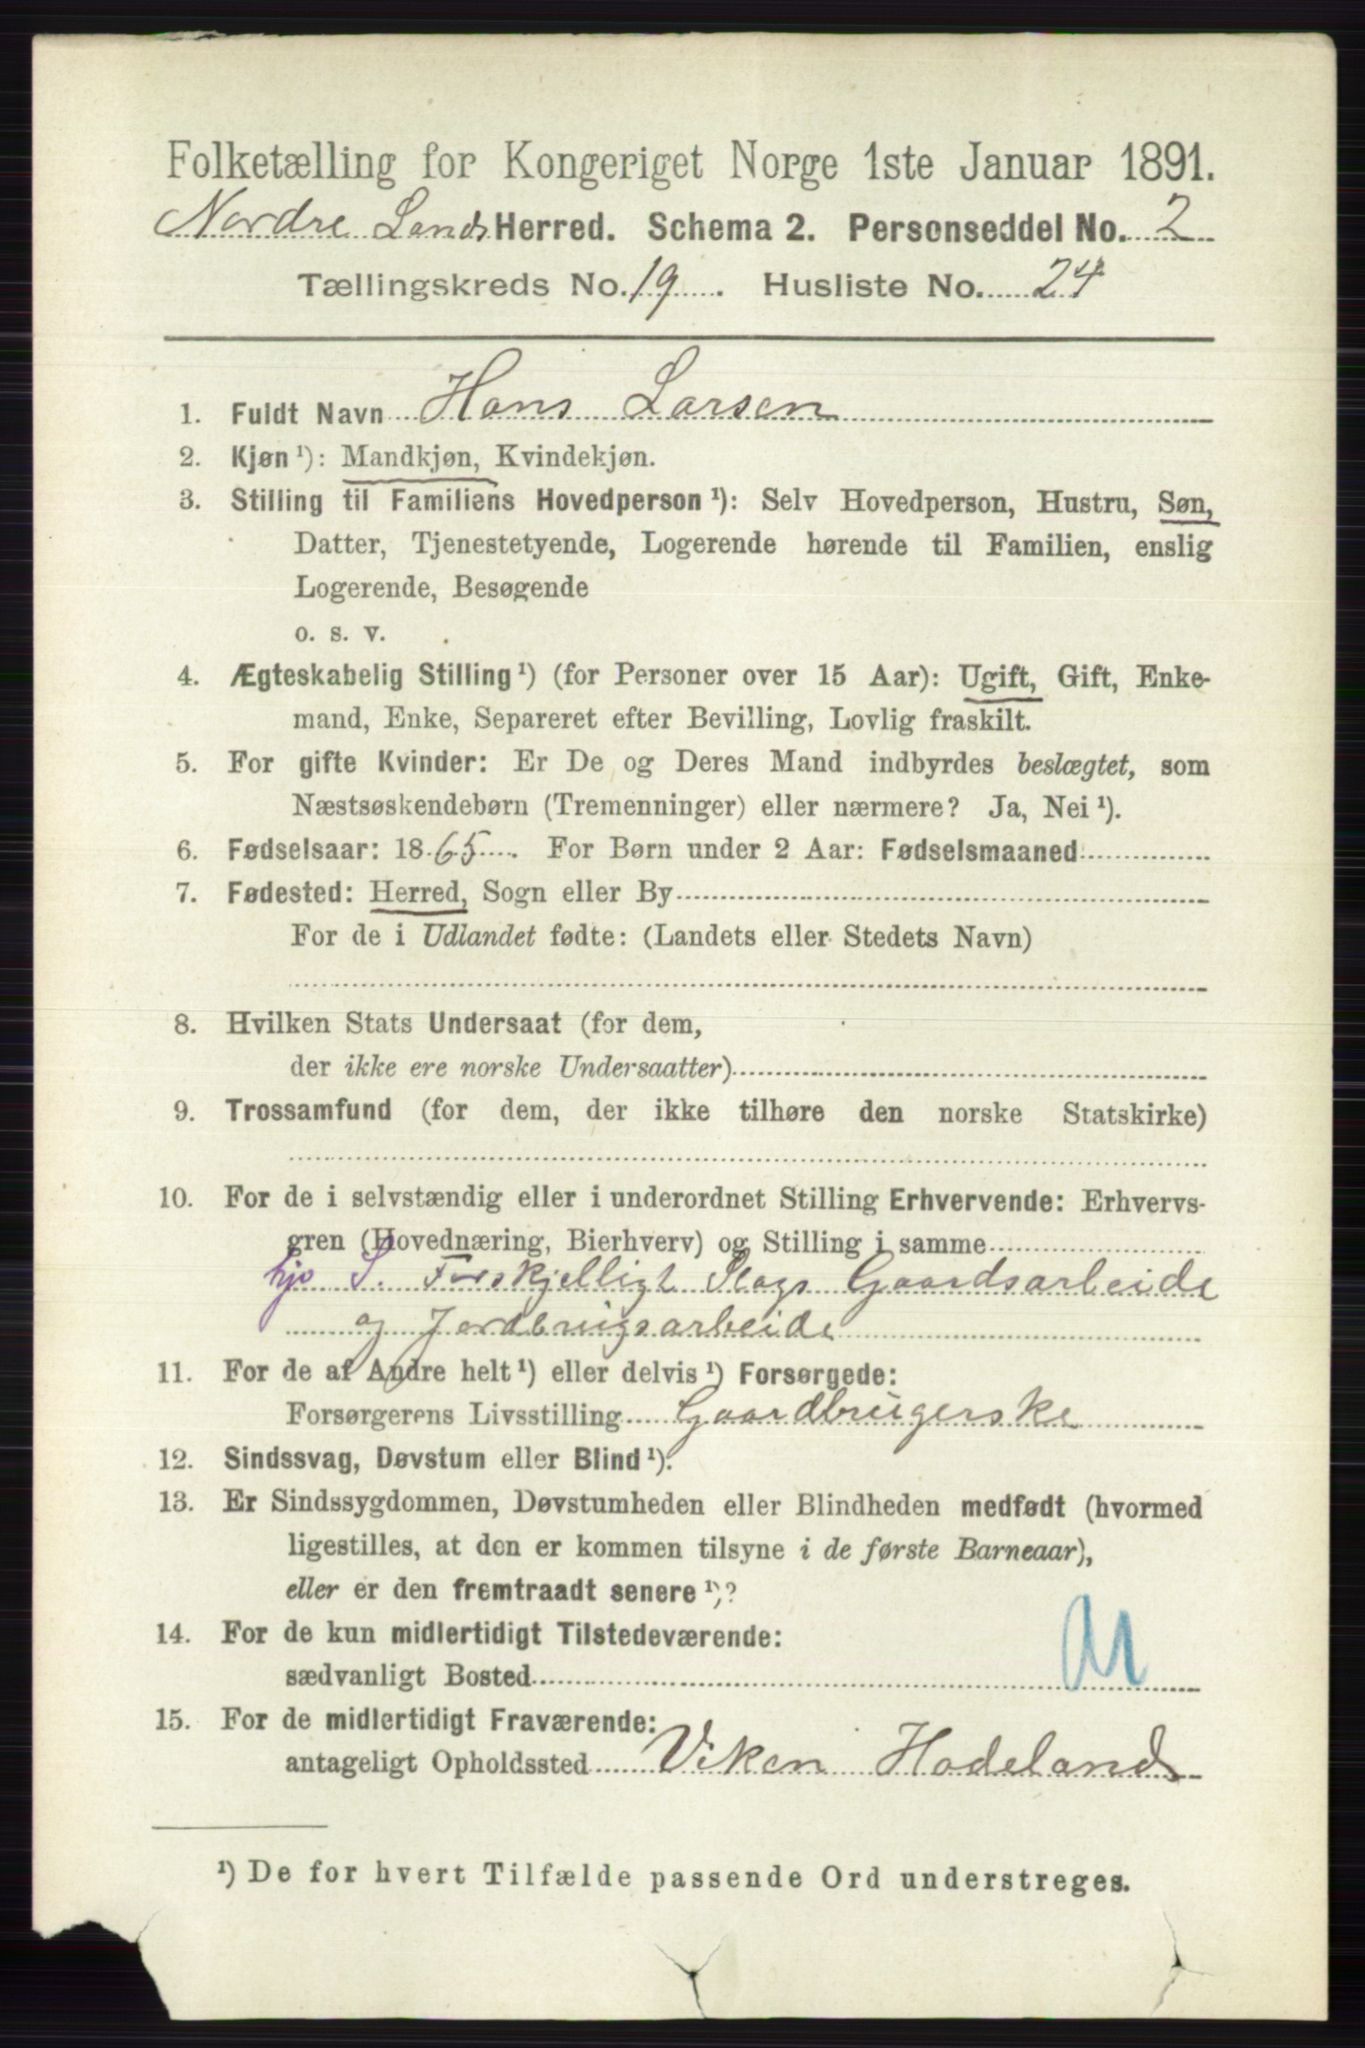 Folketælling for Kongeriget Norge 1ste Januar 1891.
Nordre Lands Herred. Schema 2. Personseddel No. 2
Tællingskreds No. 19. Husliste No. 24
1. Fuldt Navn Hans Larsen
2. Kjøn ¹): Mandkjøn, Kvindekjøn.
3. Stilling til Familiens Hovedperson ¹): Selv Hovedperson, Hustru, Søn,
Datter, Tjenestetyende, Logerende hørende til Familien, enslig
Logerende, Besøgende
o. s. v.
4. Ægteskabelig Stilling ¹) (for Personer over 15 Aar): Ugift, Gift, Enke-
mand, Enke, Separeret efter Bevilling, Lovlig fraskilt.
5. For gifte Kvinder: Er De og Deres Mand indbyrdes beslægtet, som
Næstsøskendebørn (Tremenninger) eller nærmere? Ja, Nei ¹).
6. Fødselsaar: 1865. For Børn under 2 Aar: Fødselsmaaned
7. Fødested: Herred, Sogn eller By
For de i Udlandet fødte: (Landets eller Stedets Navn)
8. Hvilken Stats Undersaat (for dem,
der ikke ere norske Undersaatter)
9. Trossamfund (for dem, der ikke tilhøre den norske Statskirke)
10. For de i selvstændig eller i underordnet Stilling Erhvervende: Erhvervs-
gren (Hovednæring, Bierhverv) og Stilling i samme
hjs S. Forskjelligt Slags Gaardsarbeide
og Jordbrugsarbeide
11. For de af Andre helt ¹) eller delvis ¹) Forsørgede:
Forsørgerens Livsstilling Gaardbrugerske
12. Sindssvag, Døvstum eller Blind ¹).
13. Er Sindssygdommen, Døvstumheden eller Blindheden medfødt (hvormed
ligestilles, at den er kommen tilsyne i de første Barneaar),
eller er den fremtraadt senere ¹)?
14. For de kun midlertidigt Tilstedeværende:
sædvanligt Bosted
15. For de midlertidigt Fraværende:
antageligt Opholdssted Viken Hadeland
¹) De for hvert Tilfælde passende Ord understreges.